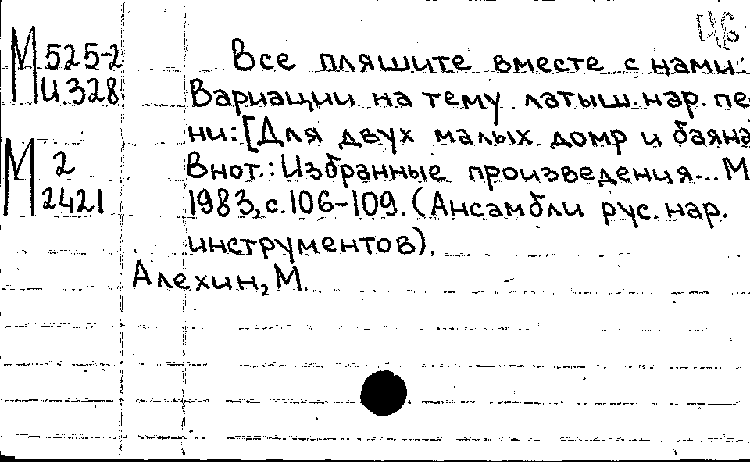 М 525-2
И 328
М 2
2421
Все пляшите вместе с нами:
Вариации на тему латыш. нар. пе
ни: [Для двух малых домр и баяна
В нот.: Избранные произведения... М
1983, с. 106-109. (Ансамбли рус. нар.
инструментов).
Алехин, М.